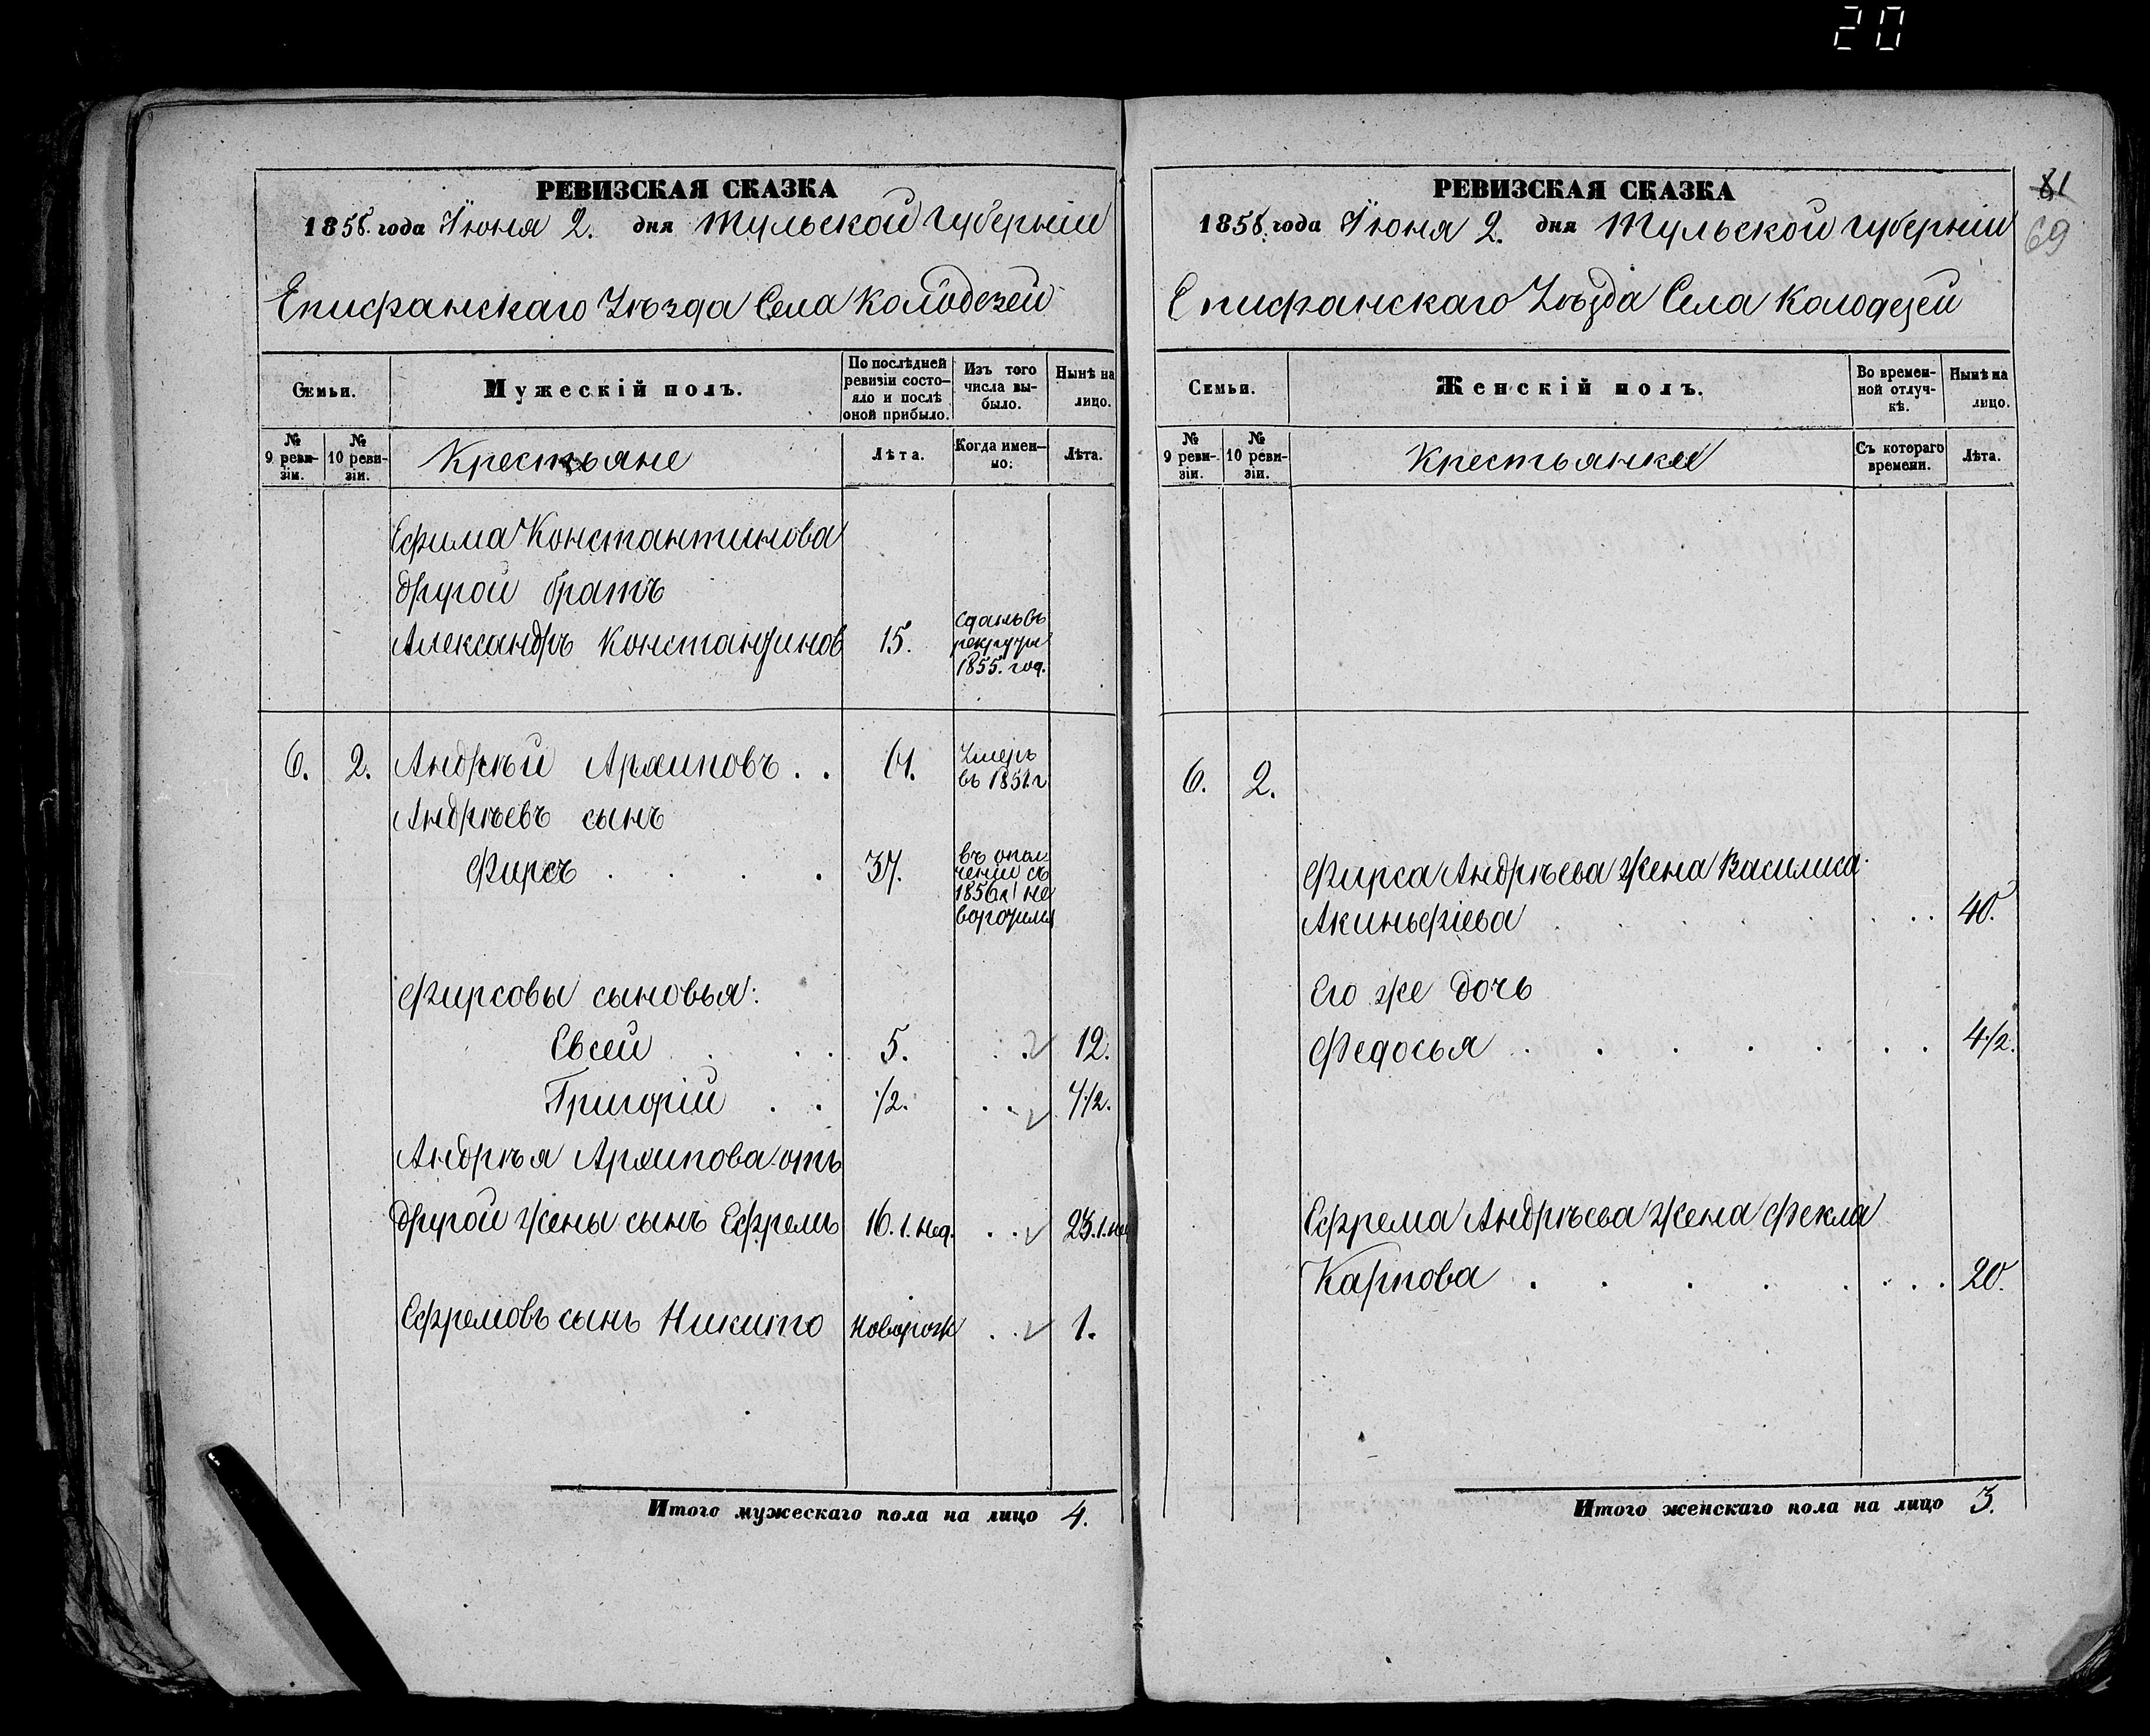 20
РЕВИЗСКАЯ СКАЗКА
1858. года Іюня 2. дня Тульской губерніи
Епифанскаго Уѣзда Села Колодезей
Семьи.
Мужескій полъ.
По послѣдней ревизіи состо-яло и послѣ оной прибыло.
Изъ того числа вы-было.
Нынѣ на лицо.
№ 9 реви-зіи.
№ 10 реви-зіи.
Крестьяне
Лѣта.
Когда имен-но:
Лѣта.
Ефима Константинова
другой братъ
Александръ Константинов 15. Сданъ въ рекруты 1855. год.
6. 2. Андрѣй Архиповъ . . 61. Умеръ въ 1851. г
Андрѣевъ сынъ
Фирсъ . . . . 37. въ опол чении съ 1856 г не
Фирсовы сыновья:
Евсей . . . 5. . . 12.
Григорій . . 1/2. . . 7 1/2.
Андрѣя Архипова отъ
другой жены сынъ Ефремъ 16. 1. нед. . . 23. 1. нед
Ефремовъ сынъ Никито новорож . . 1.
Итого мужескаго пола на лицо 4.
81
69
РЕВИЗСКАЯ СКАЗКА
1858. года Іюня 2. дня Тульской губерніи
Епифанскаго Уѣзда Села Колодезей
Семьи.
Женскій полъ.
Во времен-ной отлуч-кѣ.
Нынѣ на лицо.
№ 9 реви-зіи.
№ 10 реви-зіи.
Крестьянки
Съ котораго времени.
Лѣта.
6. 2.
Фирса Андрѣева жена Василиса
Акинфіева . . . . . . . 40.
Его же дочь
Федосья . . . . . . . 4 1/2.
Ефрема Андрѣева жена Фекла
Карпова . . . . . . . 20.
Итого женскаго пола на лицо 3.